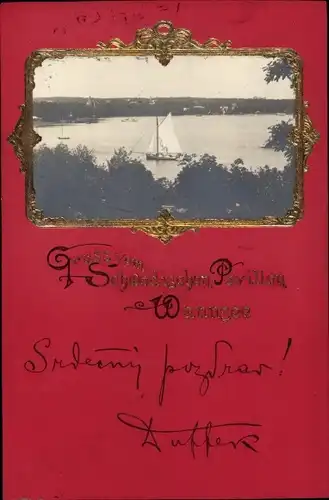 Gruss vom
Schwedischen Pavillon
Wannsee
Srdečný pozdrav!